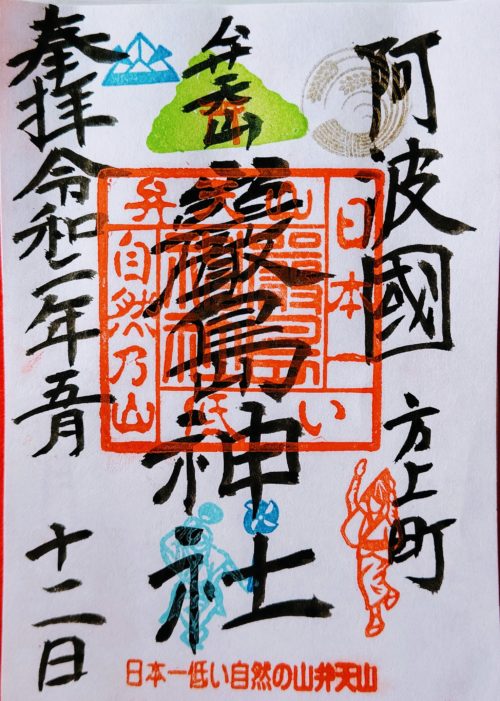 阿波國 方上町
弁天山
嚴島神社
奉拝 令和二年五月
十二日
弁天山
日本一
低い
自然乃山
嚴島神社
日本一低い自然の山弁天山